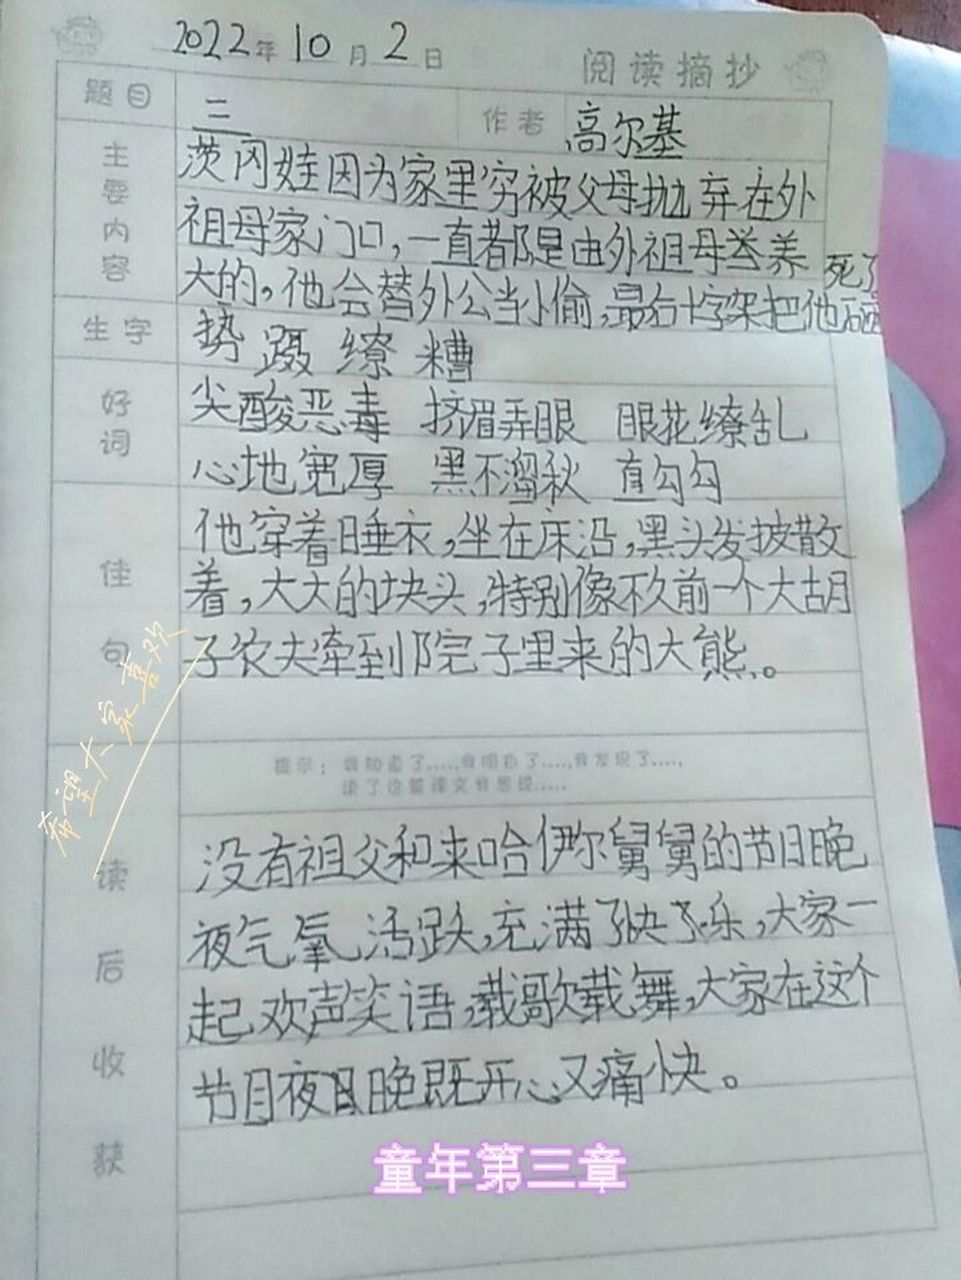 2022年10月2日
阅读摘抄
题目 三 作者 高尔基
主要内容
茨冈娃因为家里穷被父母抛弃在外
祖母家门口,一直都是由外祖母养
大的。他会替外公当小偷,最后十字架把他砸死了
生字
势 蹑 缭 糟
好词
尖酸恶毒 挤眉弄眼 眼花缭乱
心地宽厚 黑不溜秋 直勾勾
佳句
他穿着睡衣,坐在床沿,黑头发披散
着,大大的块头,特别像不久前一个大胡
子农夫牵到院子里来的大熊。
希望大家喜欢
提示:我知道了……,我明白了……,我发现了……,
读了这篇课文我想说……
读后收获
没有祖父和来哈伊尔舅舅的节日晚
夜气氛活跃,充满了快乐,大家一
起欢声笑语,载歌载舞,大家在这个
节日夜晚既开心又痛快。
童年第三章